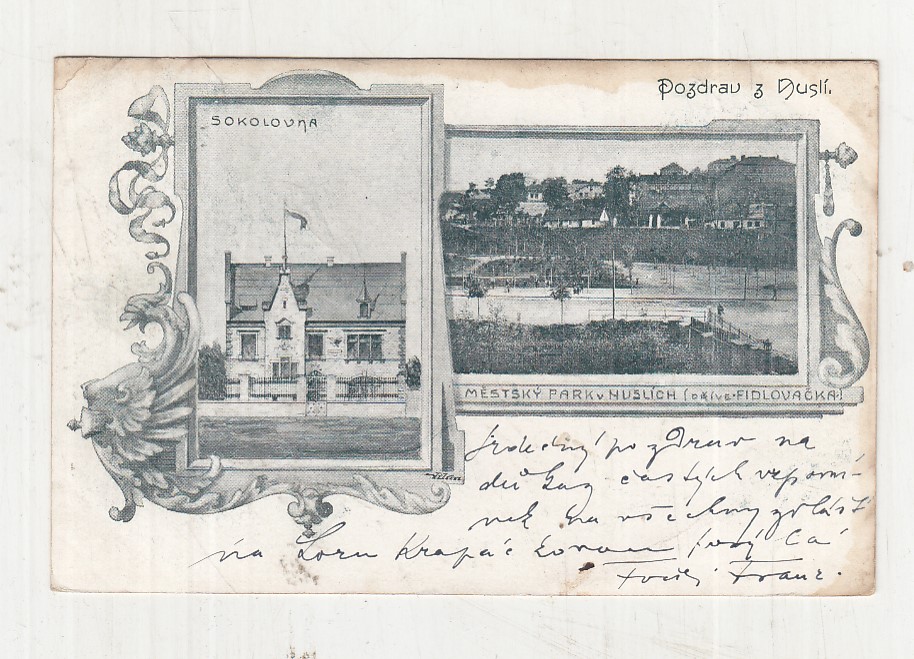 Pozdrav z Nuslí.
SOKOLOVNA
MĚSTSKÝ PARK v NUSLÍCH (DŘÍVE-FIDLOVAČKA)
Srdečný pozdrav na
důkaz častých vzpomí-
nek na všechny zvlášť
na Krapáč
Franz.